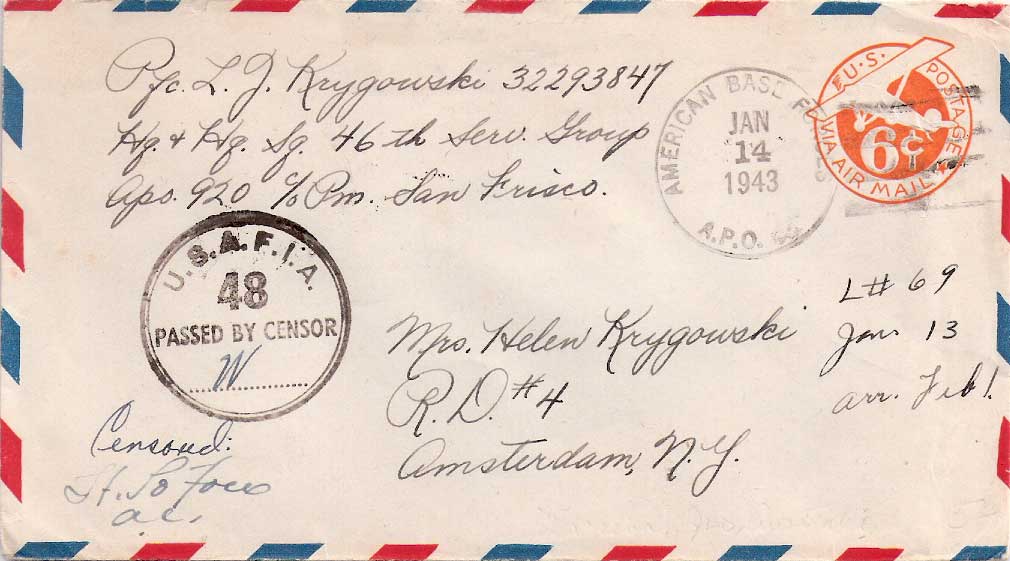 Pfc. L. J. Krygowski 32293847
Hq. & Hq. Sq. 46th Serv. Group
Apo. 920 c/o Pm. San Frisco.
AMERICAN BASE
JAN
14
1943
A.P.O.
U.S. POSTAGE
6¢
VIA AIR MAIL
U.S.A.F.I.A.
48
PASSED BY CENSOR
W
L# 69
Jan 13
arr. Feb 1.
Mrs. Helen Krygowski
R.D. #4
Amsterdam, N.Y.
Censored:
Lt.
a.c.